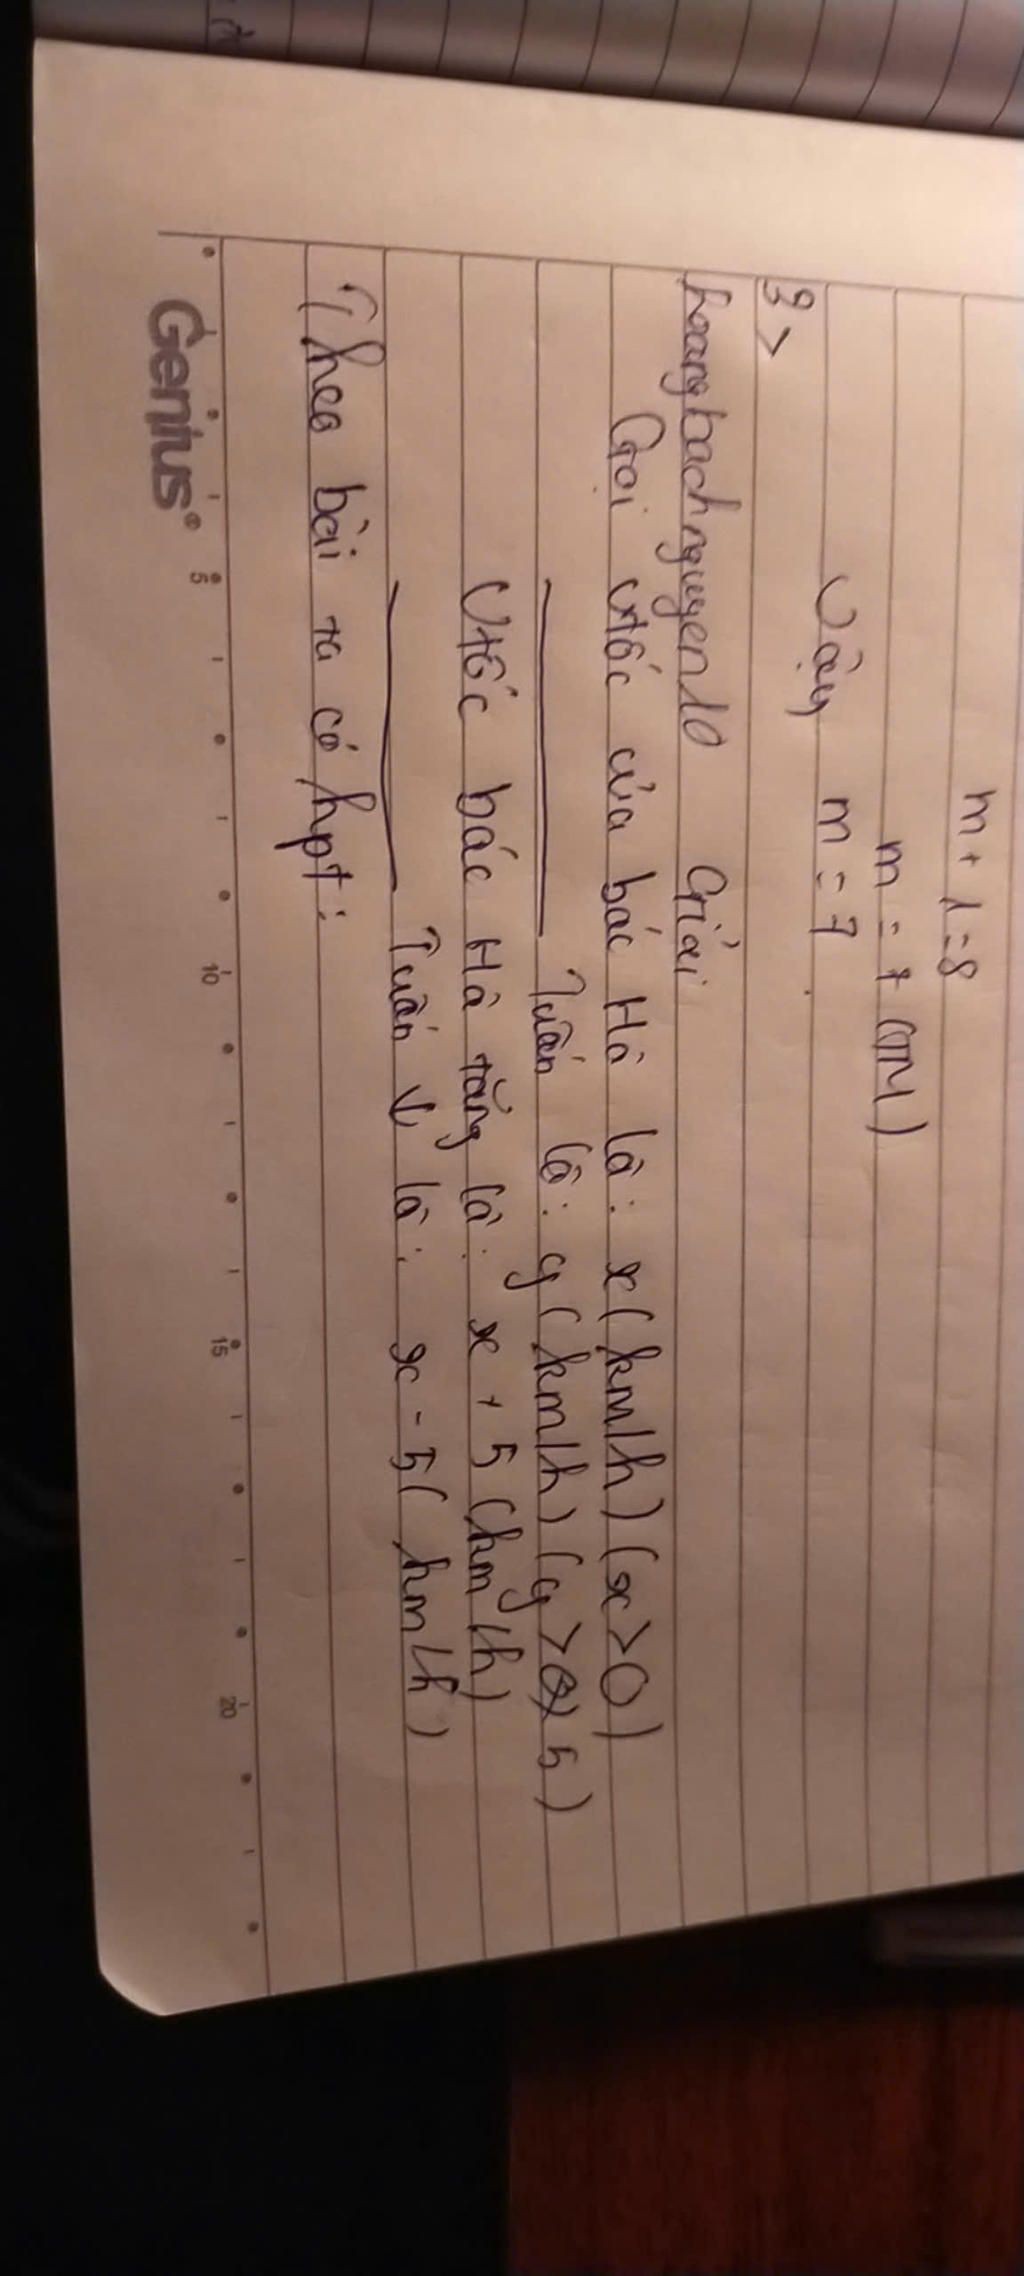 m + 1 = 8
m = 7 (TM)
Vậy m = 7.
3>
hoangbachnguyen10 Giải
Gọi vtốc của bác Hà là: x (km/h) (x > 0)
Tuấn là: y (km/h) (y > 5)
Vtốc bác Hà tăng là: x + 5 (km/h)
Tuấn ↓ là: x - 5 (km/h)
Theo bài ta có hpt:
5 10 15 20
Genius®